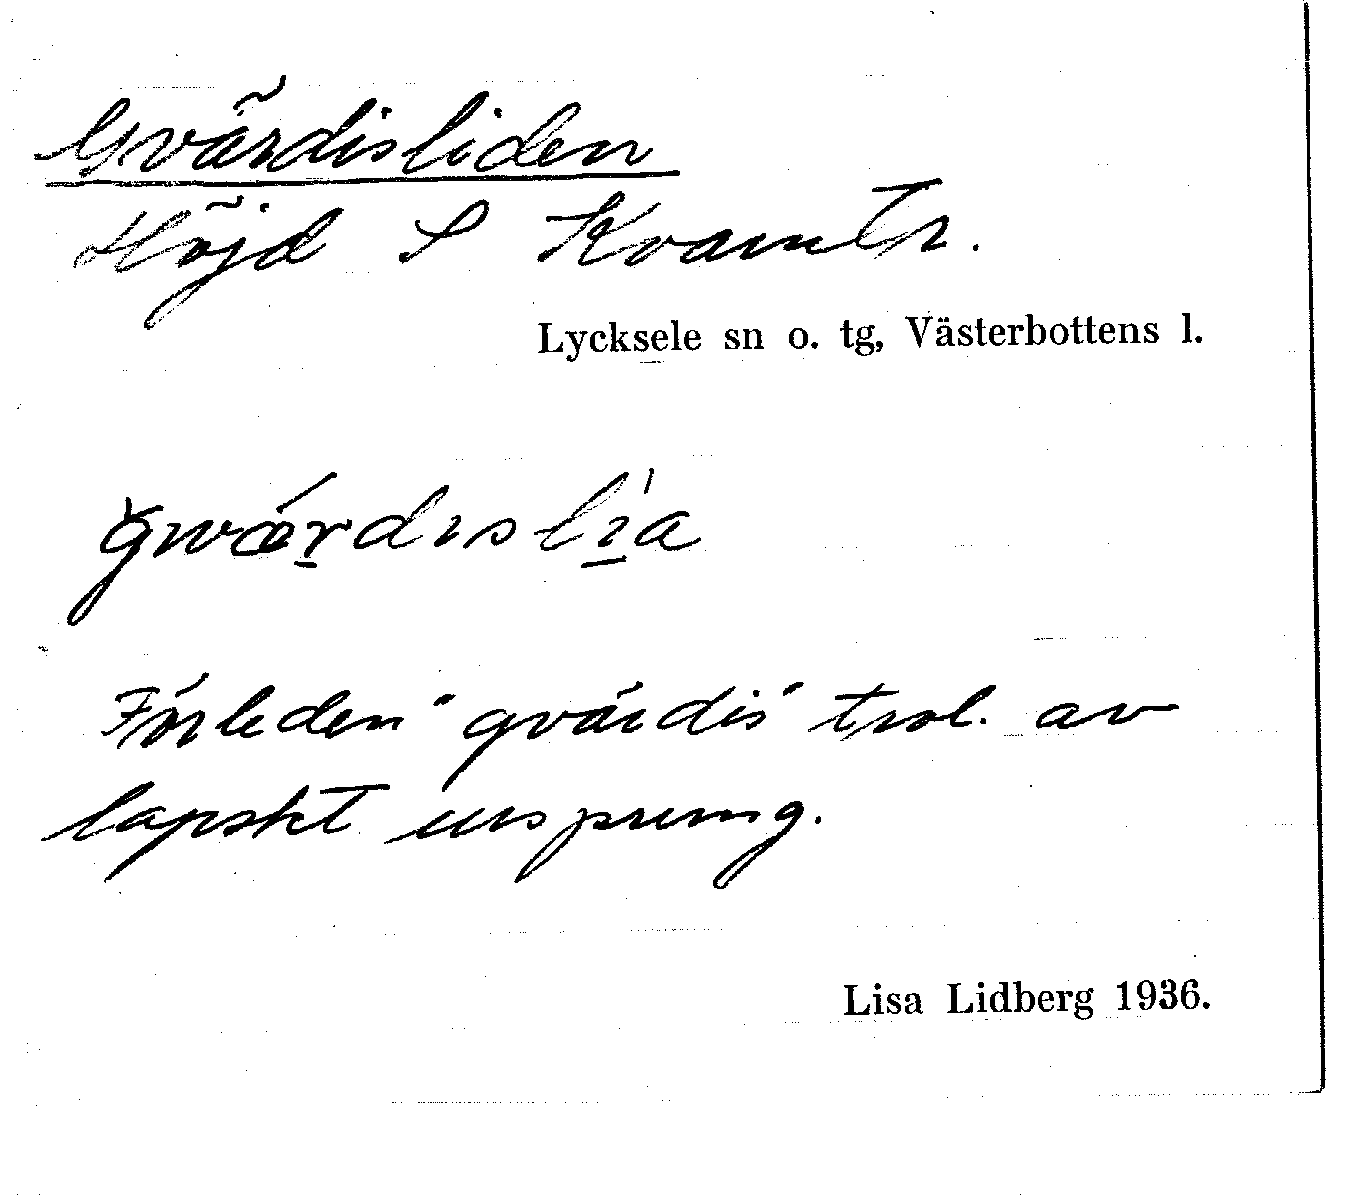 Gvärdisliden
Höjd S Kvarntr.
Lycksele sn o. tg, Västerbottens l.
gwǽr̲dıslı̲́a
Förleden "gvärdis" trol. av
lapskt ursprung.
Lisa Lidberg 1936.